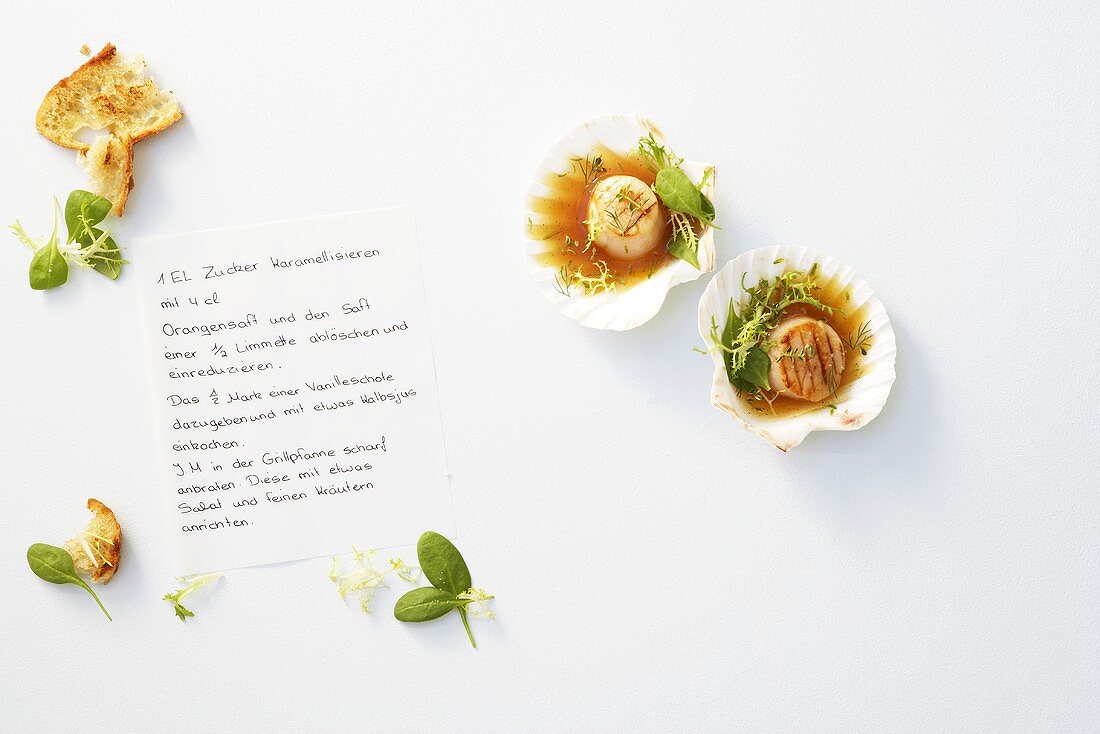 1 EL Zucker karamellisieren
mit 4 cl
Orangensaft und den Saft
einer 1/2 Limmette ablöschen und
einreduzieren.
Das 1/2 Mark einer Vanilleschote
dazugeben und mit etwas Kalbsjus
einkochen.
J.M in der Grillpfanne scharf
anbraten. Diese mit etwas
Salat und feinen Kräutern
anrichten.